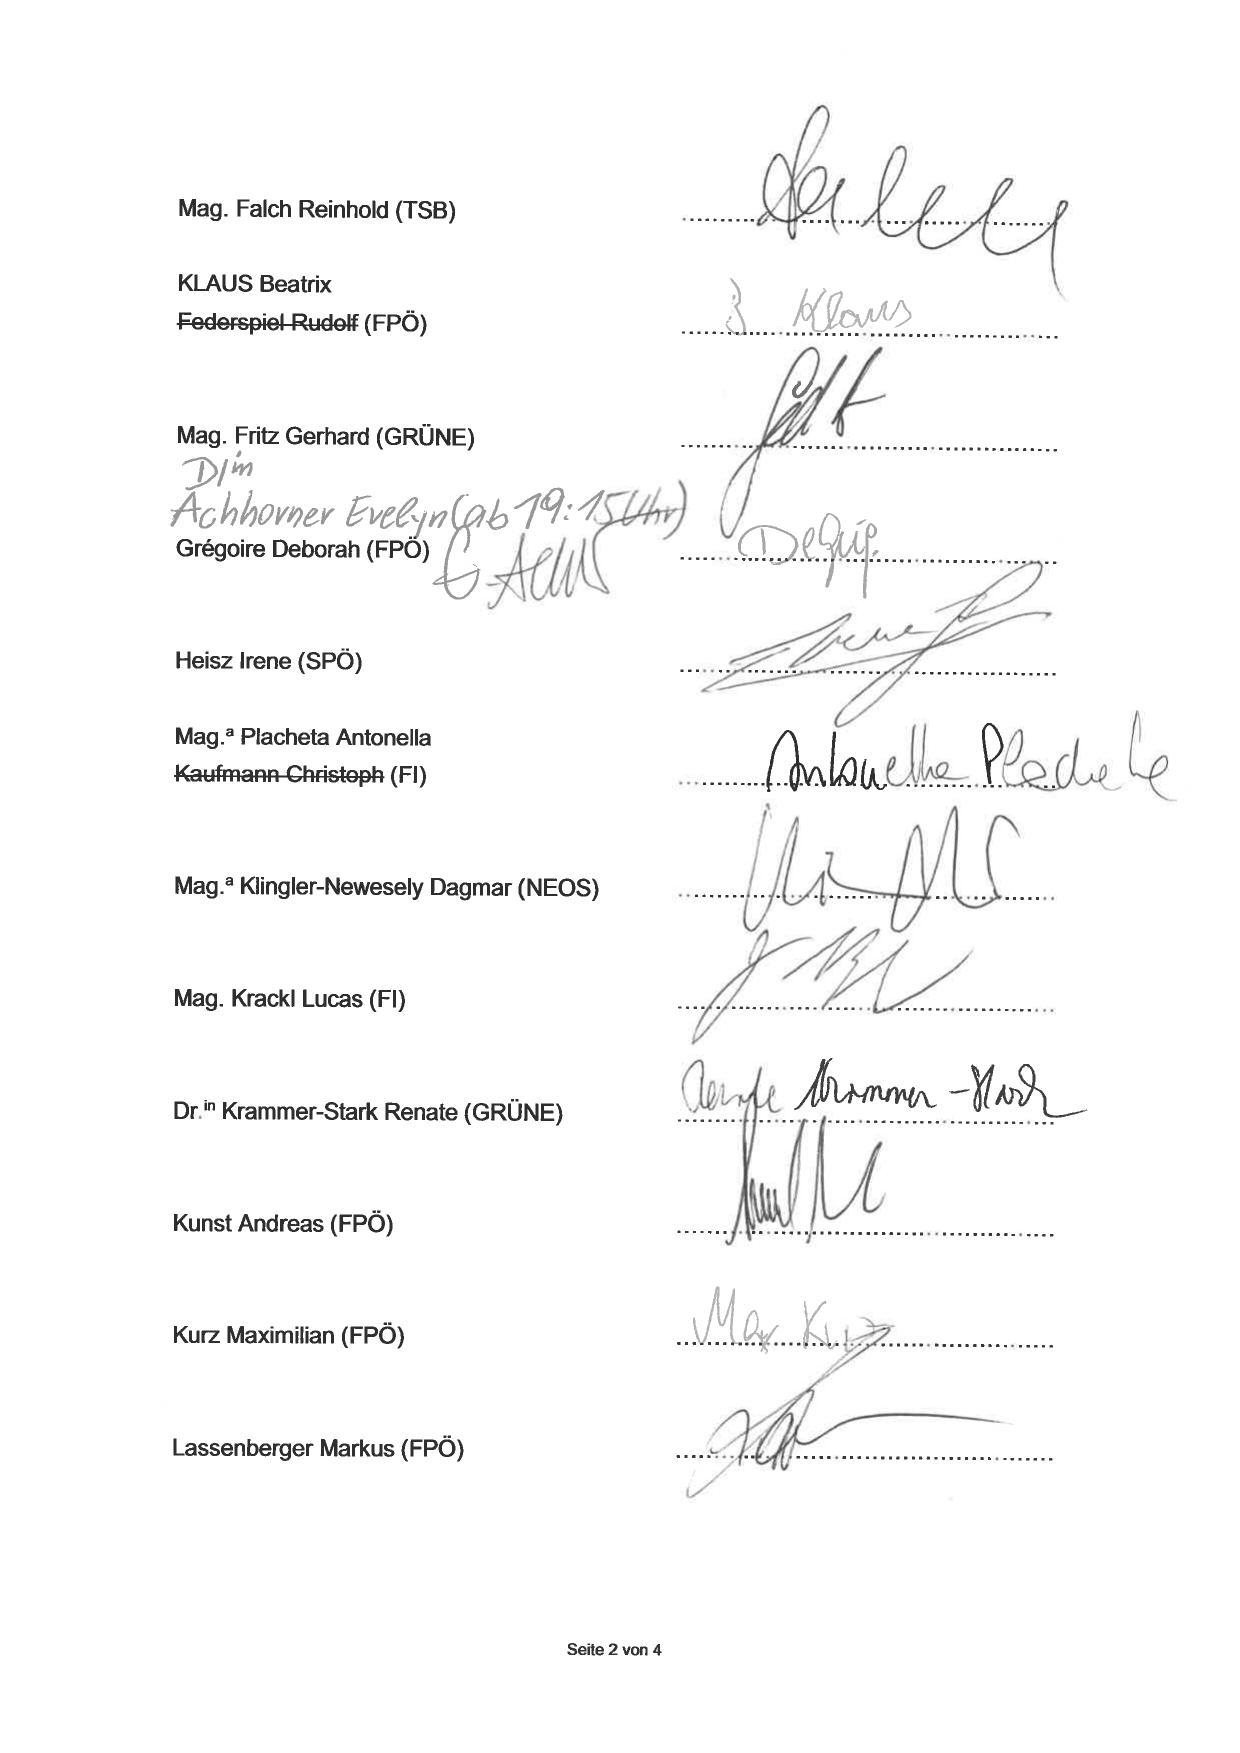 Mag. Falch Reinhold (TSB)
KLAUS Beatrix
Federspiel Rudolf (FPÖ)
B Klaus
Mag. Fritz Gerhard (GRÜNE)
D/in
Achhorner Evelyn (ab 19:15 Uhr)
Grégoire Deborah (FPÖ)
Heisz Irene (SPÖ)
Mag.ª Placheta Antonella
Kaufmann Christoph (FI)
Antonella Placheta
Mag.ª Klingler-Newesely Dagmar (NEOS)
Mag. Krackl Lucas (FI)
Renate Krammer-Stark
Dr.in Krammer-Stark Renate (GRÜNE)
Kunst Andreas (FPÖ)
Max Kurz
Kurz Maximilian (FPÖ)
Lassenberger Markus (FPÖ)
Seite 2 von 4